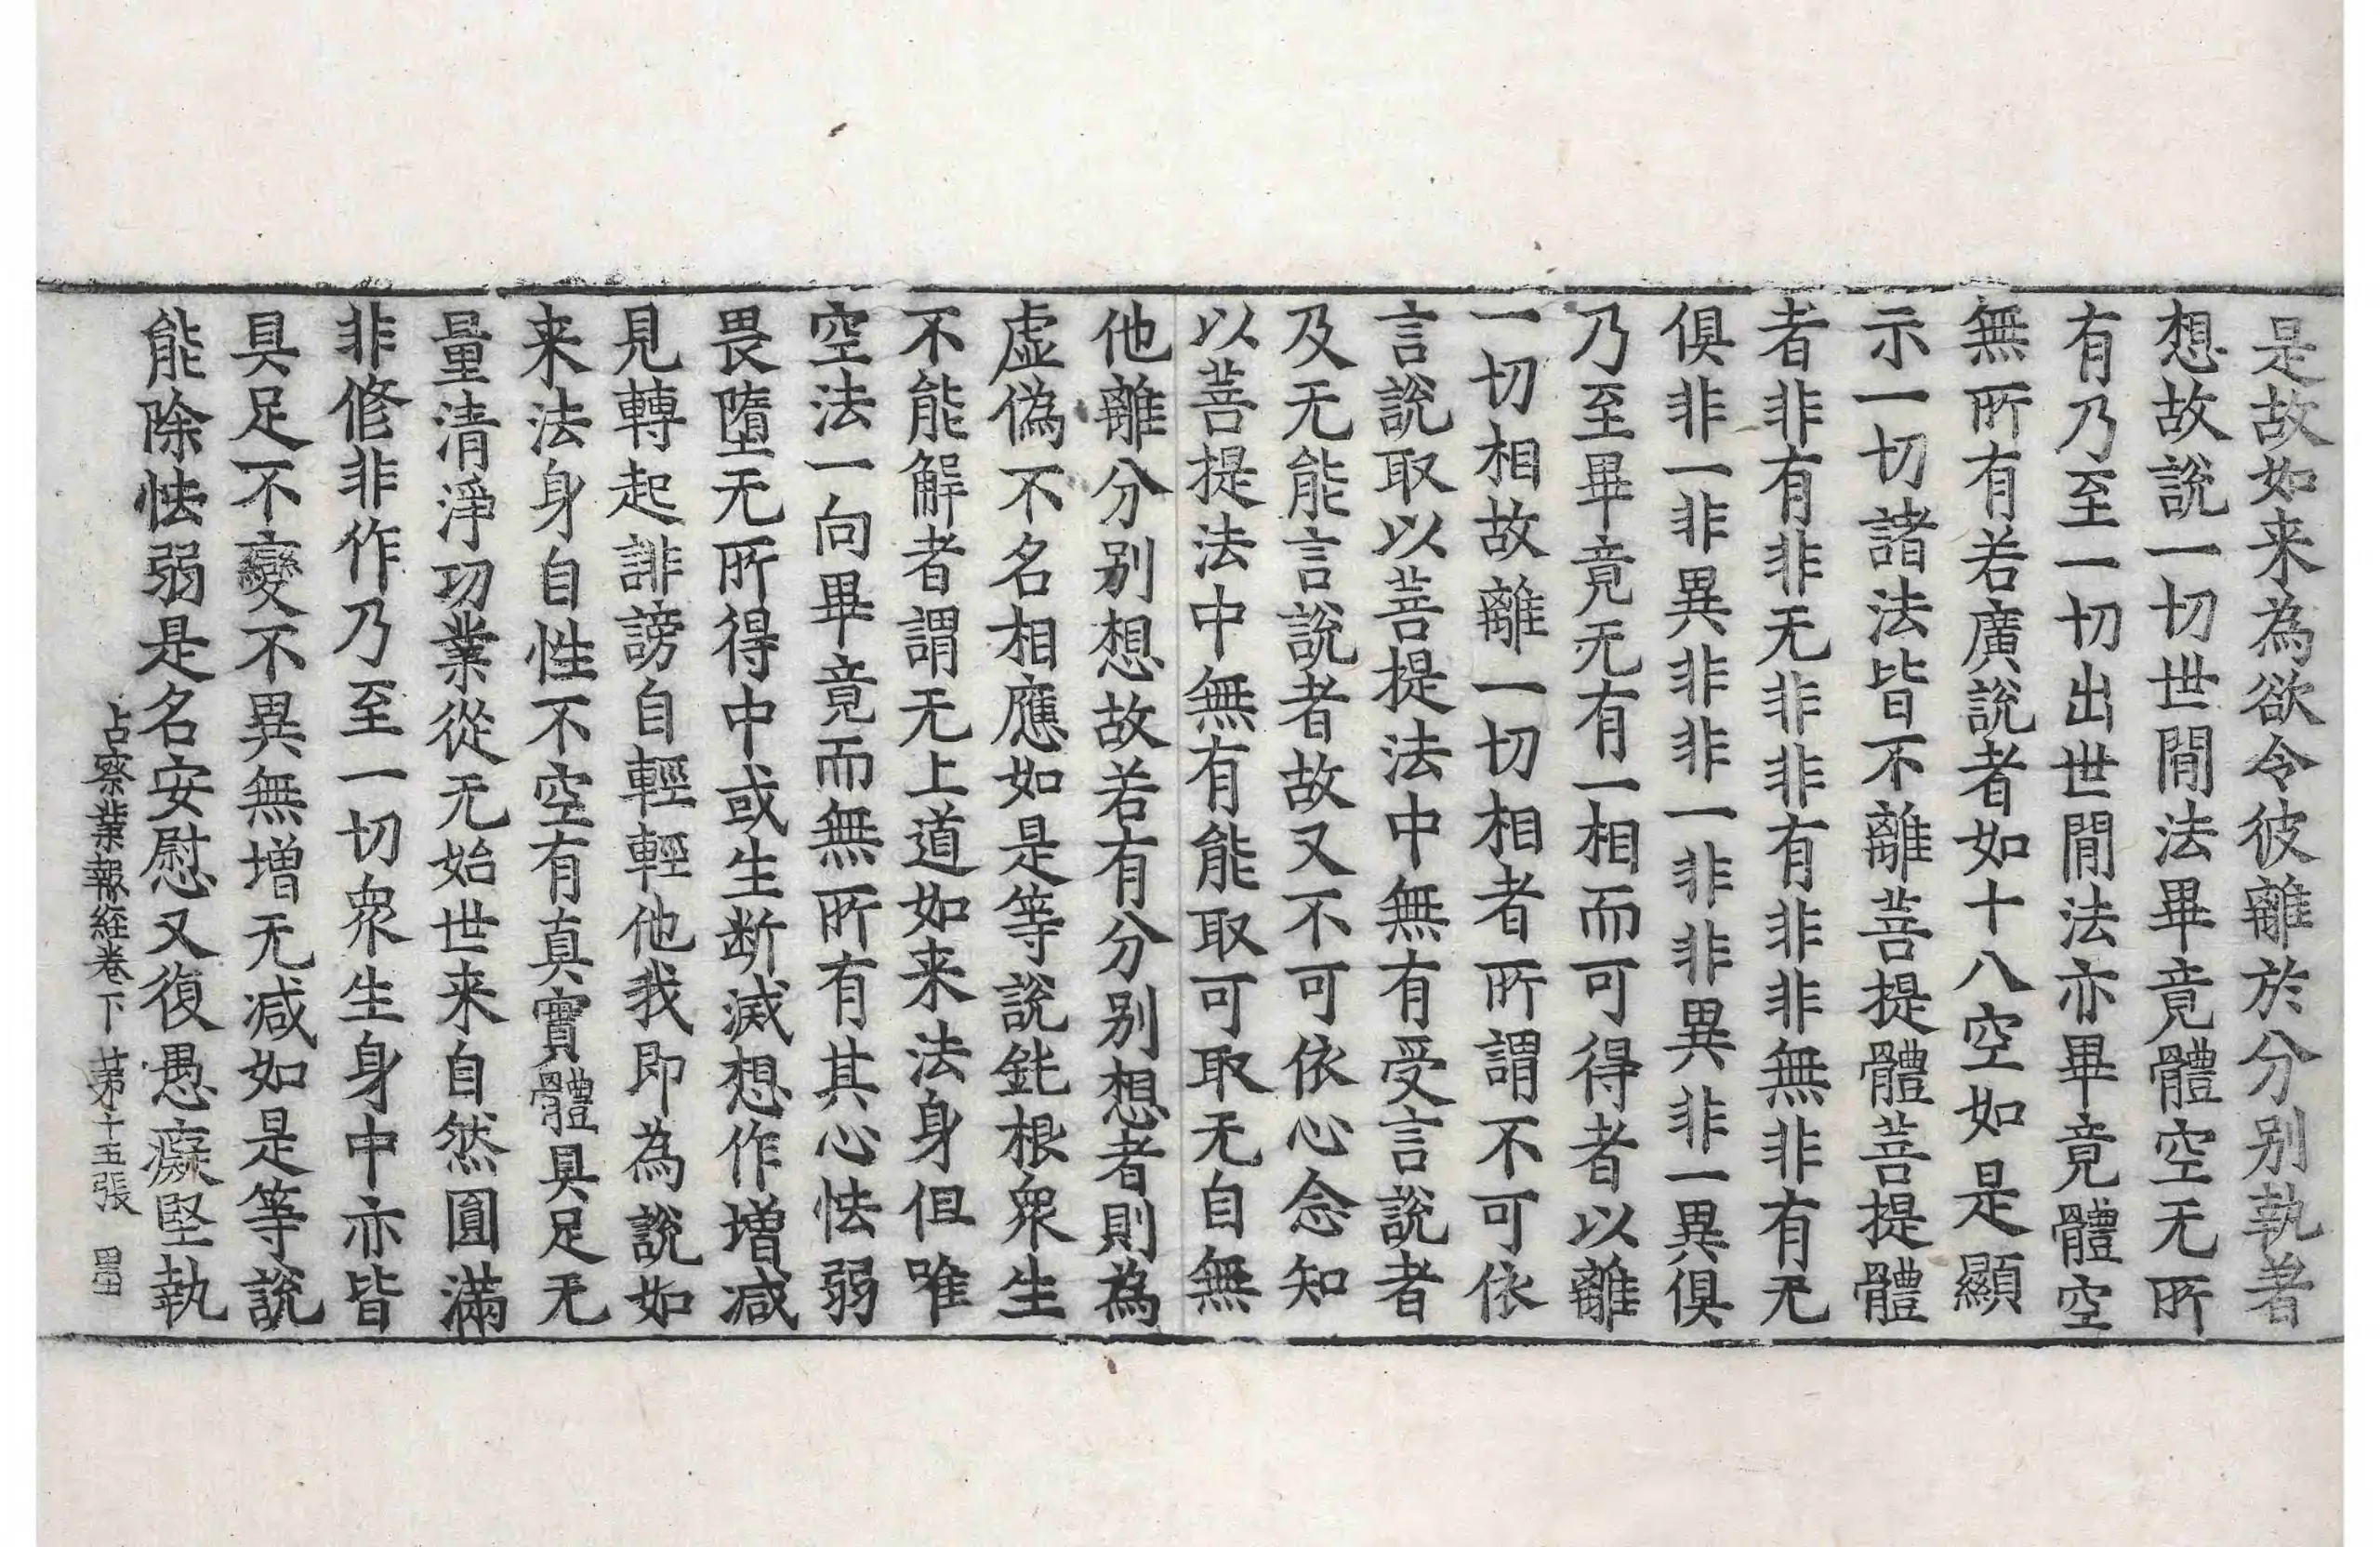 是故如来為欲令彼離於分别執著
想故說一切世間法畢竟體空无所
有乃至一切出世間法亦畢竟體空
無所有若廣說者如十八空如是顯
示一切諸法皆不離菩提體菩提體
者非有非无非非有非非無非有无
俱非一非異非非一非非異非一異俱
乃至畢竟无有一相而可得者以離
一切相故離一切相者所謂不可依
言說取以菩提法中無有受言說者
及无能言說者故又不可依心念知
以菩提法中無有能取可取无自無
他離分别想故若有分别想者則為
虛偽不名相應如是等說鈍根衆生
不能解者謂无上道如来法身但唯
空法一向畢竟而無所有其心怯弱
畏墮无所得中或生断滅想作增減
見轉起誹謗自輕輕他我即為說如
来法身自性不空有真實體具足无
量清淨功業從无始世来自然圓滿
非修非作乃至一切衆生身中亦皆
具足不變不異無增无減如是等說
能除怯弱是名安慰又復愚癡堅執
占察業報経卷下 苐十五張